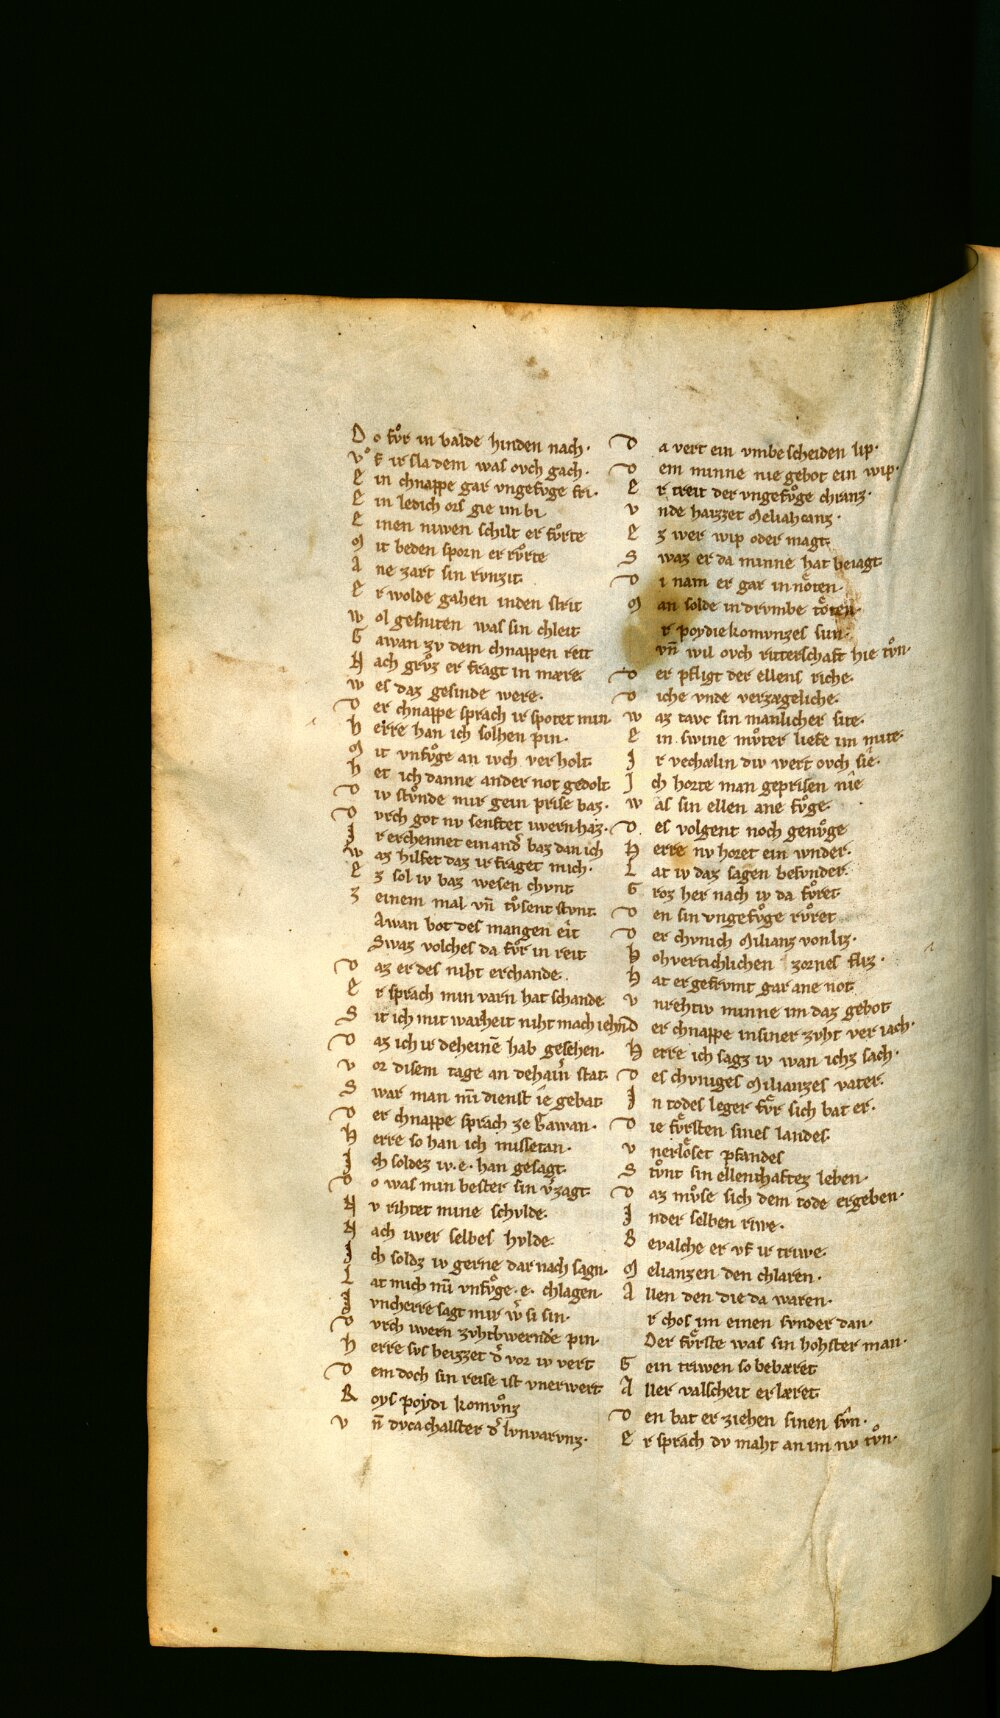 D o fvͦr in balde hinden nach·
vͦ f ir sla dem was ovch gach·
E in chnappe gar vngefvge fri·
E in ledich ors gie im bi
E inen nuwen schilt er fvͦrte
M it beden sporn er rvͦrte
A ne zart sin rvnzit
E r wolde gahen inden strit
W ol gesniten was sin chleit
G awan zv dem chnappen reit
N ach grvͦz er fragt in mære
W es daz gesinde were·
D er chnappe sprach ir spotet min
H erre han ich solhen pin·
M it vnfvͦge an iwch verholt
H et ich danne ander not gedolt
D iv stvͦnde mir gein prise baz·
D vrch got nv senftet iwern haz·
I r erchennet einand̾ baz dan ich
W az hilfet daz ir fraget mich·
E z sol iv baz wesen chvnt
Z einem mal vn̄ tvͦsent stvnt
Awan bot des mangen eit
Swaz volches da fvͦr in reit
D az er des niht erchande
E r sprach min varn hat schande
S it ich mit warheit niht mach iehn̄
D az ich ir deheinē hab gesehen·
V or disem tage an dehain̾ stat
S war man mī dienst îe gebat
D er chnappe sprach ze Gawan·
H erre so han ich missetan·
I ch soldez iv·e·han gesagt
D o was min bester sin v̾zagt
N v rihtet mine schvlde·
N ach iwer selbes hvlde·
I ch soldz iv gerne dar nach sagn·
L at mich mī vnfvͦge·e·chlagen·
I vncherre sagt mir w̾ si sin·
D vrch iwern zvhtbwernde pin·
H erre svs heizzet d̾ vor iv vert
D em doch sin reise ist vnerwert
R oys poydi komvͦnz
V n̄ dvca chalster d̾ lvnvarvnz·
D a vert ein vmbescheiden lip·
D em minne nie gebot ein wip·
E r treit der vngefvͦge chranz·
V nde haizzet Meliahcanz·
E z wer wip oder magt
S waz er da minne hat beiagt
D i nam er gar in nœten
M an solde in drvmbe tœten·
r poydiekomvnzes sun·
vn̄ wil ovch ritterschaft hie tvͦn·
D er pfligt der ellens riche·
D iche vnde verzægeliche·
W az tavc sin manlicher site·
E in swine mvͦter liefe im mite·
I r vechælin div wert ovch sie·
I ch horte man geprisen nîe
W as sin ellen ane fvͦge·
D es volgent noch genvͦge
H erre nv horet ein wnder·
L at iv daz sagen besvnder·
G roz her nach iv da fvͦret
D en sin vngefvͦge rvͦret
D er chvnich Milianz von liz·
H ohvertichlichen zornes fliz·
H at er gefrvmt gar ane not
V nrehtiv minne im daz gebot
D er chnappe in siner zvht ver iach·
H erre ich sagz iv wan ichz sach·
D es chvniges Milianzes vater·
I n todes leger fvͤr sich bat er·
D ie fvͤrsten sines landes
V nerlôset pfandes
S tvͦnt sin ellenthaftez leben·
D az mvͦse sich dem tode ergeben·
I nder selben riwe·
B evalche er vf ir triwe·
M elianzen den chlaren·
A llen den die da waren·
r chos im einen svnder dan·
Der fvͤrste was sin hohster man·
G ein triwen so bebæret
A ller valscheit erlæret
D en bat er ziehen sinen svͦn·
E r sprach dv maht an im nv tvͦn·